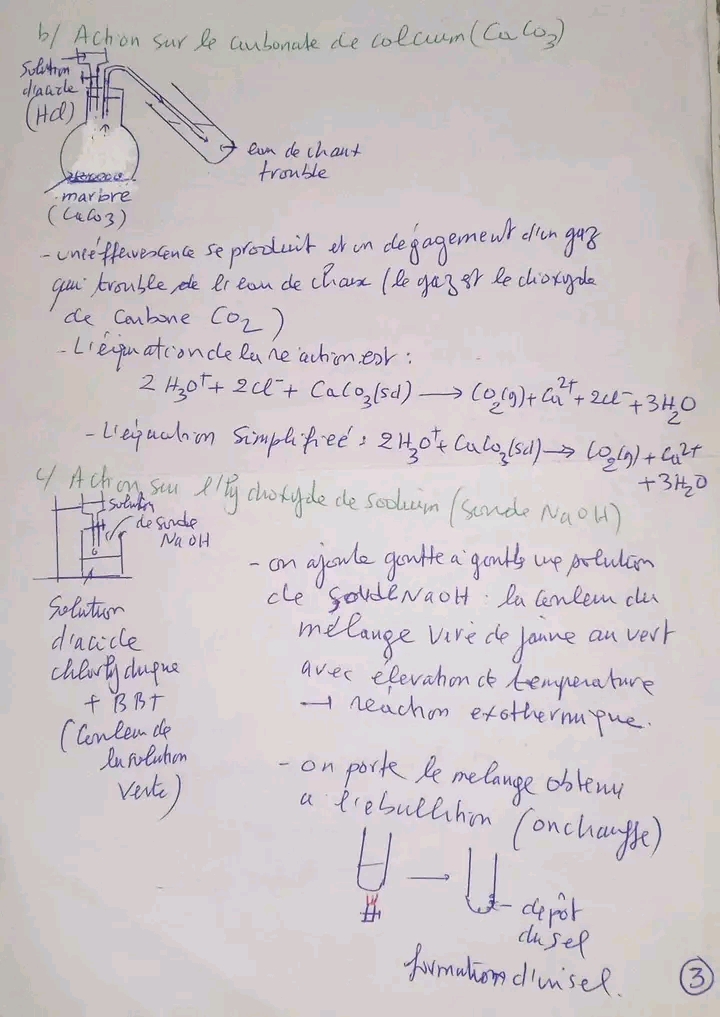 b/ Action sur le carbonate de calcium (CaCo3)
Solution
d'acide
(Hcl)
eau de chaux
trouble
marbre
(CaCo3)
- une effervescence se produit et un dégagement d'un gaz
qui trouble de l'eau de chaux (le gaz est le dioxyde
de Carbone CO2)
- L'équation de la réaction est :
2 H3O+ + 2cl- + CaCo3(sd) → CO2(g) + Ca2+ + 2cl- + 3H2O
- L'équation Simplifieé : 2H3O+ + CaCo3(sd) → CO2(g) + Ca2+
+ 3H2O
c/ Action sur l'hydroxyde de sodium (Soude NaOH)
Solution
de soude
NaOH
Solution
d'acide
chlorhydrique
+ BBT
(Couleur de
la solution
verte)
- on ajoute goutte à goutte une solution
de soude NaOH : la couleur du
mélange vire de jaune au vert
avec élevation de température
→ réaction exothermique.
- on porte le melange obtenu
a l'ebullition (on chauffe)
→
dépôt
du sel
formation d'un sel.
3